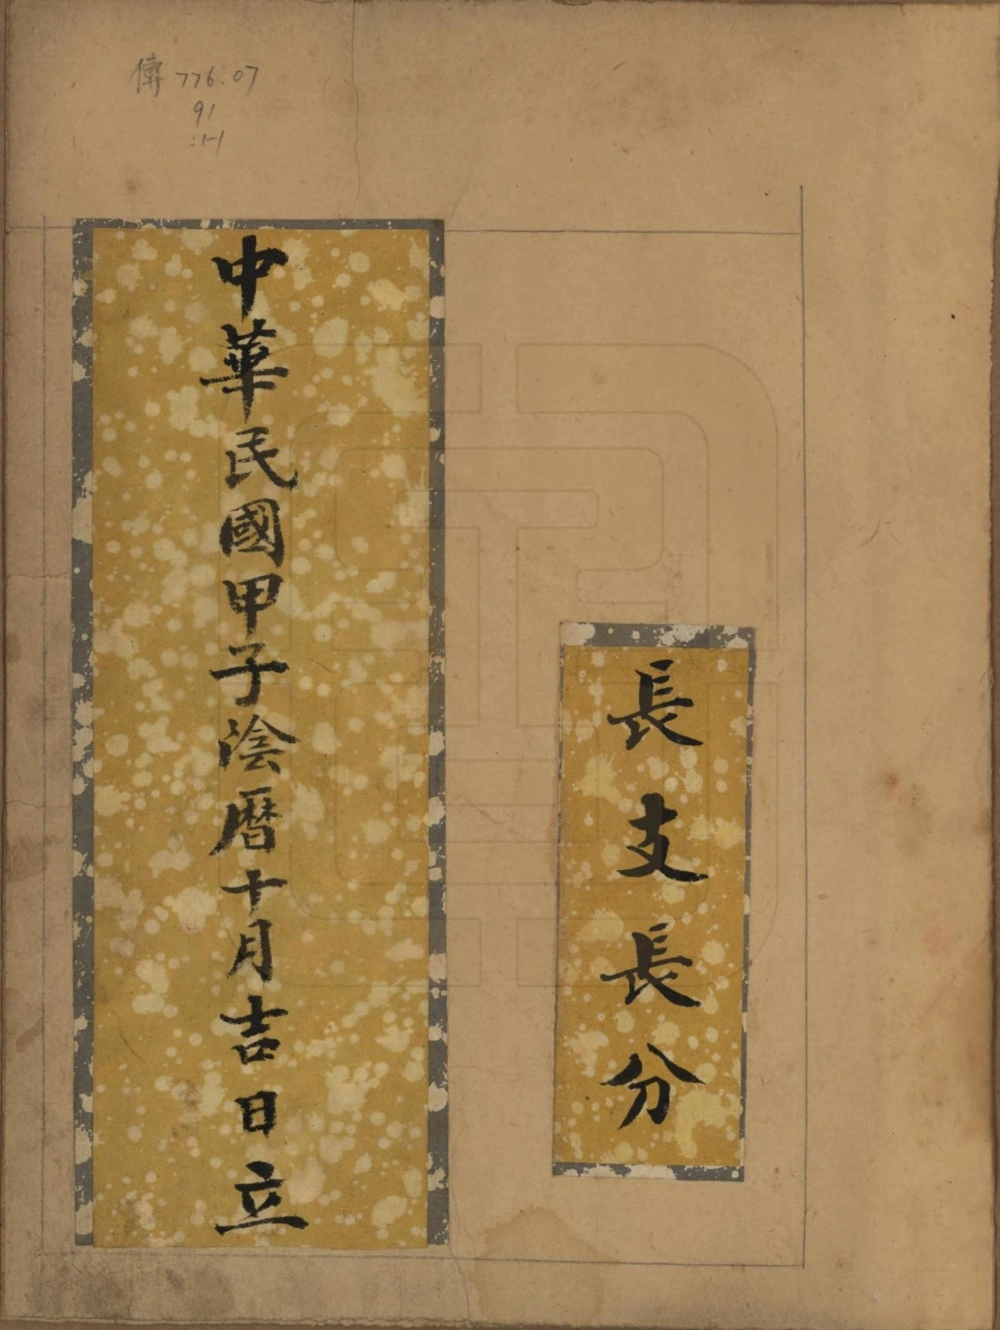 傳 776.07
91
:1-1
長支長分
中華民國甲子陰暦十月吉日立